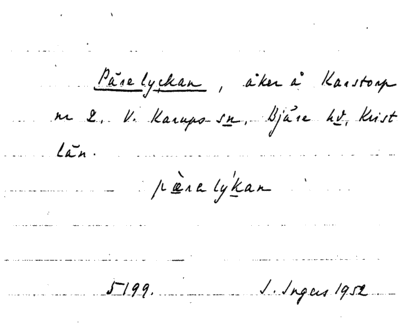 Päralyckan, åker å Karstorp
nr 2, V. Karups sn, Bjäre hd, Krist
län.
pæ̀ralýkan
5199. I. Ingers 1952